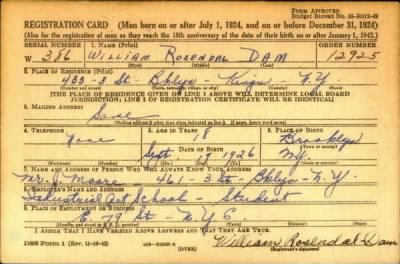 FORM APPROVED
Budget Bureau No. 33-R012-42
REGISTRATION CARD (Men born on or after July 1, 1924, and on or before December 31, 1924)
(Also for the registration of men as they reach the 18th anniversary of the date of their birth on or after January 1, 1943.)
SERIAL NUMBER 1. NAME (Print) ORDER NUMBER
W 386 WILLIAM ROSENDAL DAM 12925
(First) (Middle) (Last)
2. PLACE OF RESIDENCE (Print)
433 - 3 St. Bklyn - Kings N.Y.
[THE PLACE OF RESIDENCE GIVEN ON LINE 2 ABOVE WILL DETERMINE LOCAL BOARD
JURISDICTION; LINE 2 OF REGISTRATION CERTIFICATE WILL BE IDENTICAL]
3. MAILING ADDRESS
Same
4. TELEPHONE 5. AGE IN YEARS 6. PLACE OF BIRTH
None 18 Brooklyn
DATE OF BIRTH
Sept 19 1926 N.Y.
7. NAME AND ADDRESS OF PERSON WHO WILL ALWAYS KNOW YOUR ADDRESS
Moore 461 - 3 St. Bklyn - N.Y.
8. EMPLOYER'S NAME AND ADDRESS
Industrial Art School - Student
9. PLACE OF EMPLOYMENT OR BUSINESS
E. 79 St - N.Y.C.
I AFFIRM THAT I HAVE VERIFIED ABOVE ANSWERS AND THAT THEY ARE TRUE.
DSS Form 1 (Rev. 11-16-42) (OVER) William Rosendal Dam